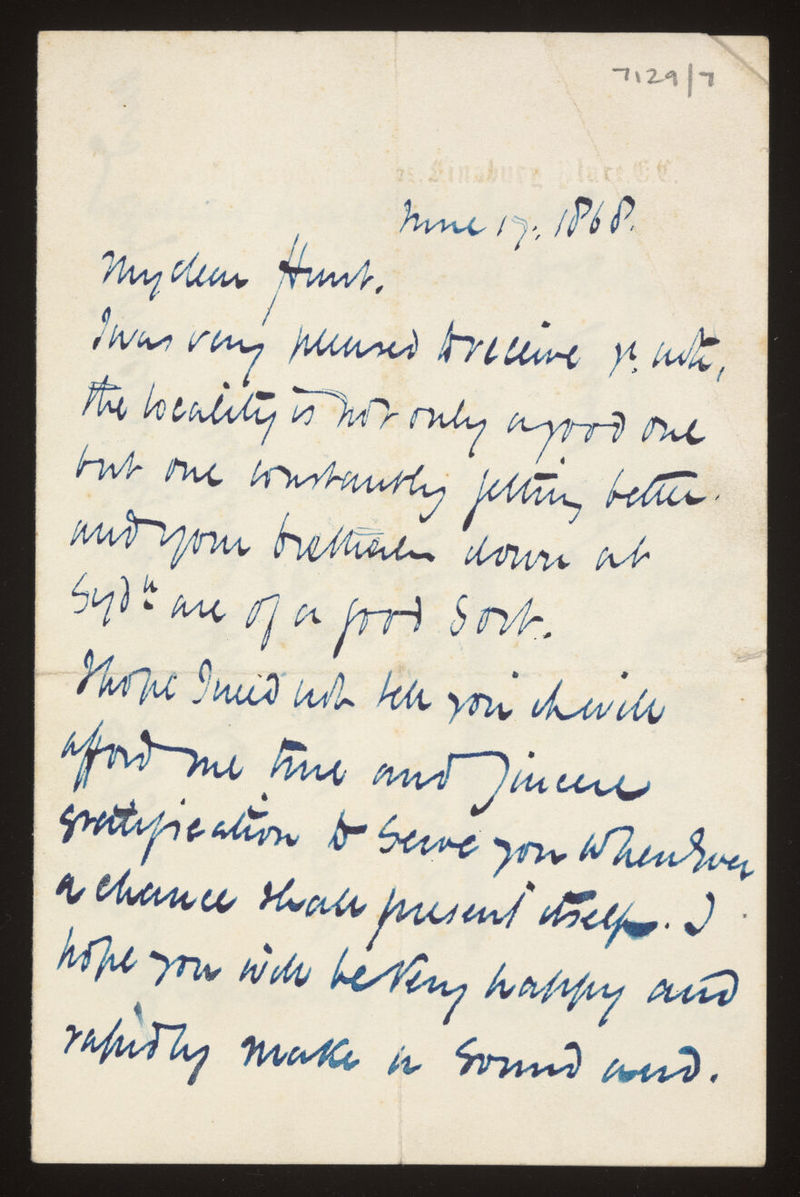 7129/7
Finsbury Place, E.C.
June 17. 1868.
My dear Hunt.
I was very pleased to receive yr. note,
the locality is not only a good one
but one constantly getting better.
and your brethren down at
Sydm are of a good Sort.
I hope I need not tell you it will
afford me true and Sincere
gratification to Serve you whenever
a chance shall present itself. I
hope you will be very happy and
rapidly make a Sound and.